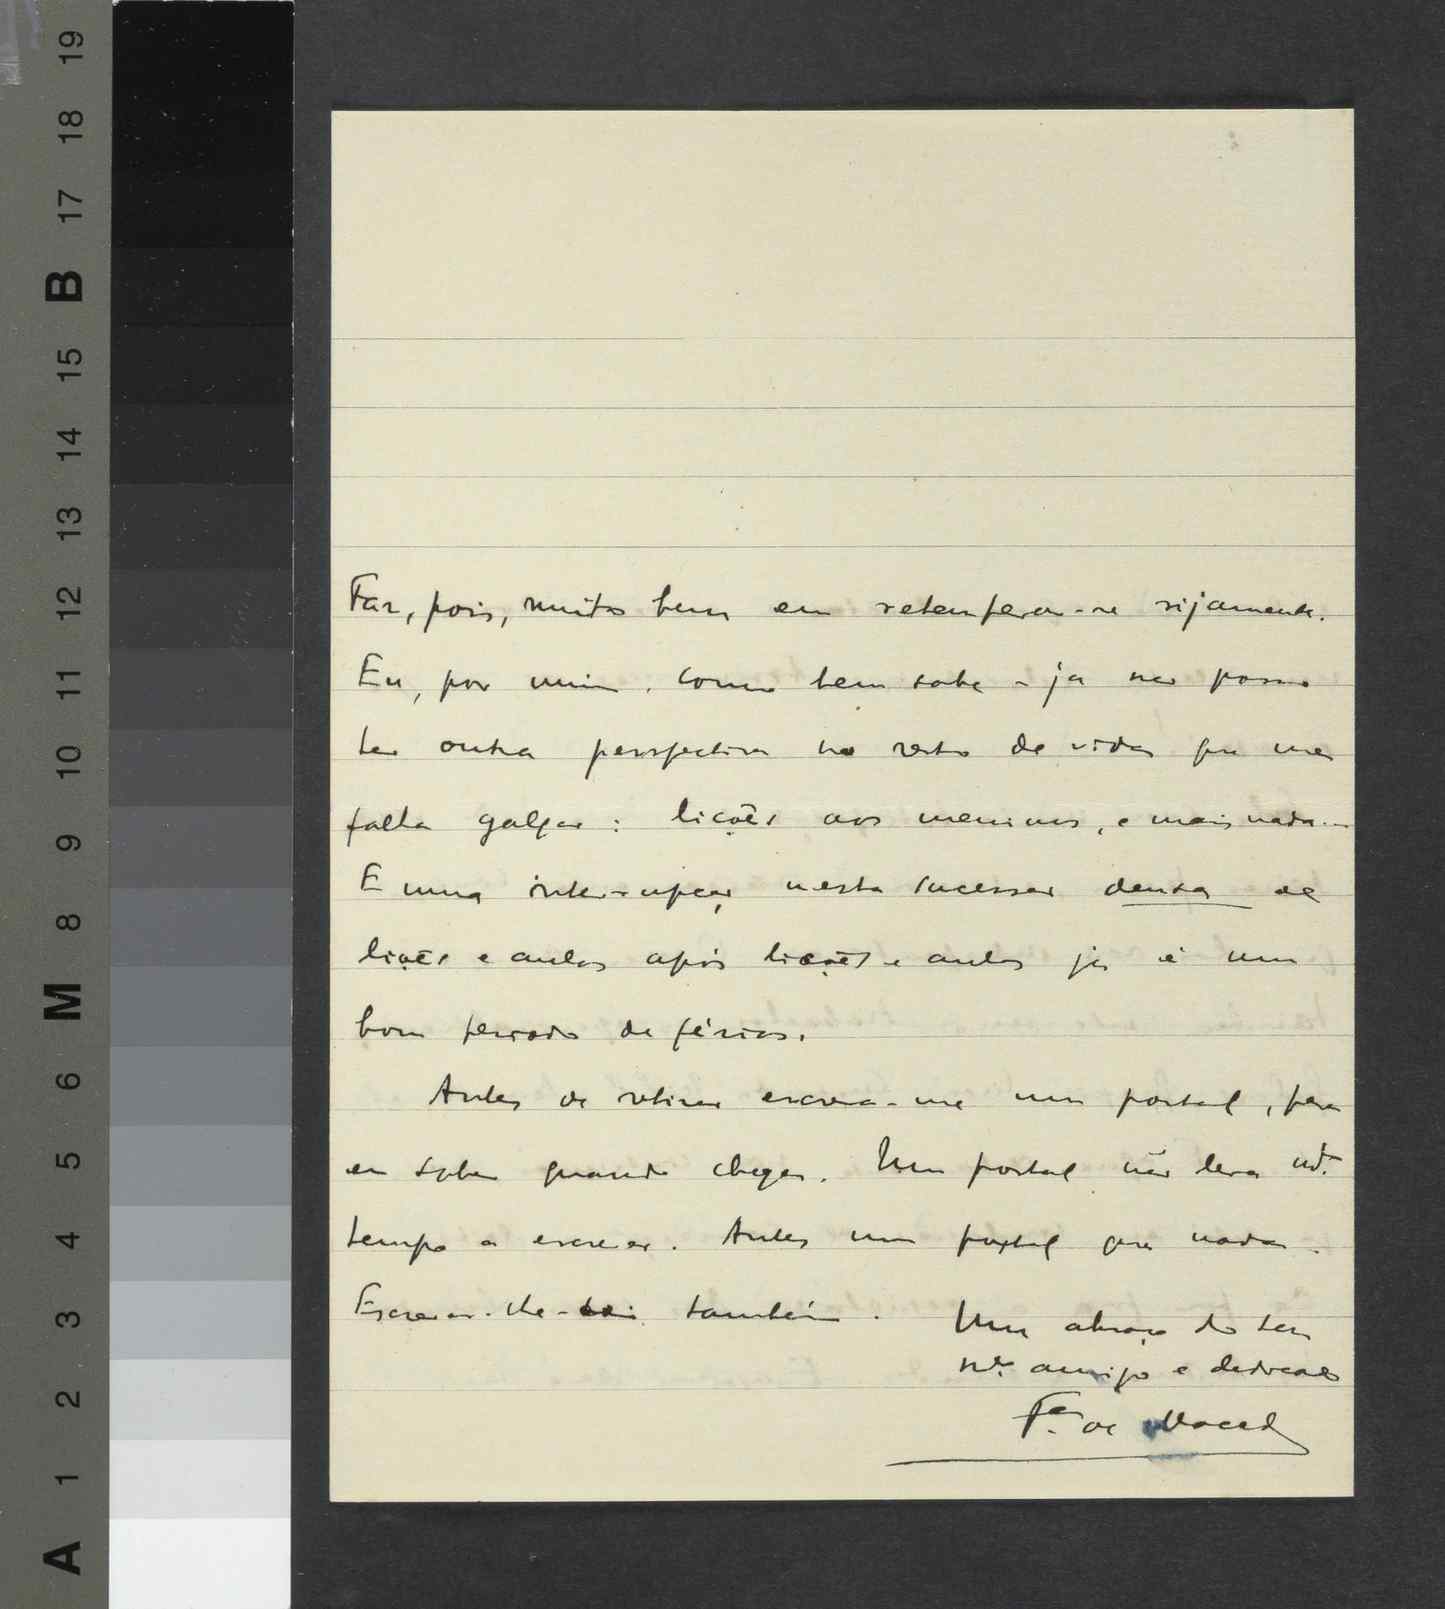 19
18
17
B
15
14
13
12
11
10
9
8
M
6
5
4
3
2
1
A
Faz, pois, muito bem em retemperar-se rijamente.
Eu, por mim - como bem sabe - já não posso
ter outra perspectiva no resto de vida que me
falta galgar: lições aos meninos, e mais nada...
E uma interrupção nesta sucessão densa de
lições e aulas após lições e aulas já é um
bom periodo de férias.
Antes de retirar escreva-me um postal, para
eu saber quando chega. Um postal não leva md.to
tempo a escrever. Antes um postal que nada.
Escrever-lhe-ei também.
Um abraço do seu
mt.o amigo e dedicado
F.co de Macedo